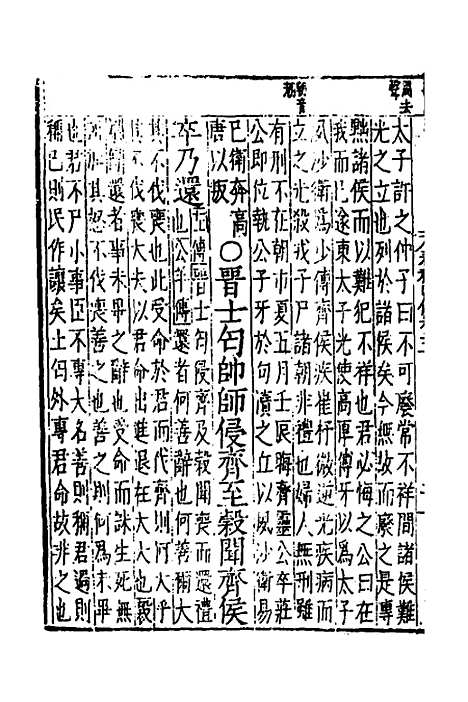 間去聲
太子許之仲子曰不可廢常不祥間諸侯難
光之立也列於諸侯矣今無故而廢之是專
黜諸侯而以難犯不祥也君必悔之公曰在
我而已遂東太子光使高厚傅牙以為太子
夙沙衛為少傅齊侯疾崔杼微逆光疾病而
立之光殺戎子尸諸朝非禮也婦人無刑雖
有刑不在朝市夏五月壬辰晦齊靈公卒莊
公即位執公子牙於句瀆之丘以夙沙衛易
已衛奔高
唐以叛
○晉士匄帥師侵齊至穀聞齊侯
卒乃還
左傳晉士匄侵齊及穀聞喪而還禮
也公羊傳還者何善辭也何善爾大
其不伐喪也此受命於君而伐齊則何大乎
其不伐喪大夫以君命出進退在大夫也穀
梁傳還者事未畢之辭也受命而誅生死無
所加其怒不伐喪善之則何為未畢
也君不尸小事臣不專大名善則稱君過則
稱已則民作讓矣士匄外專君命故非之也